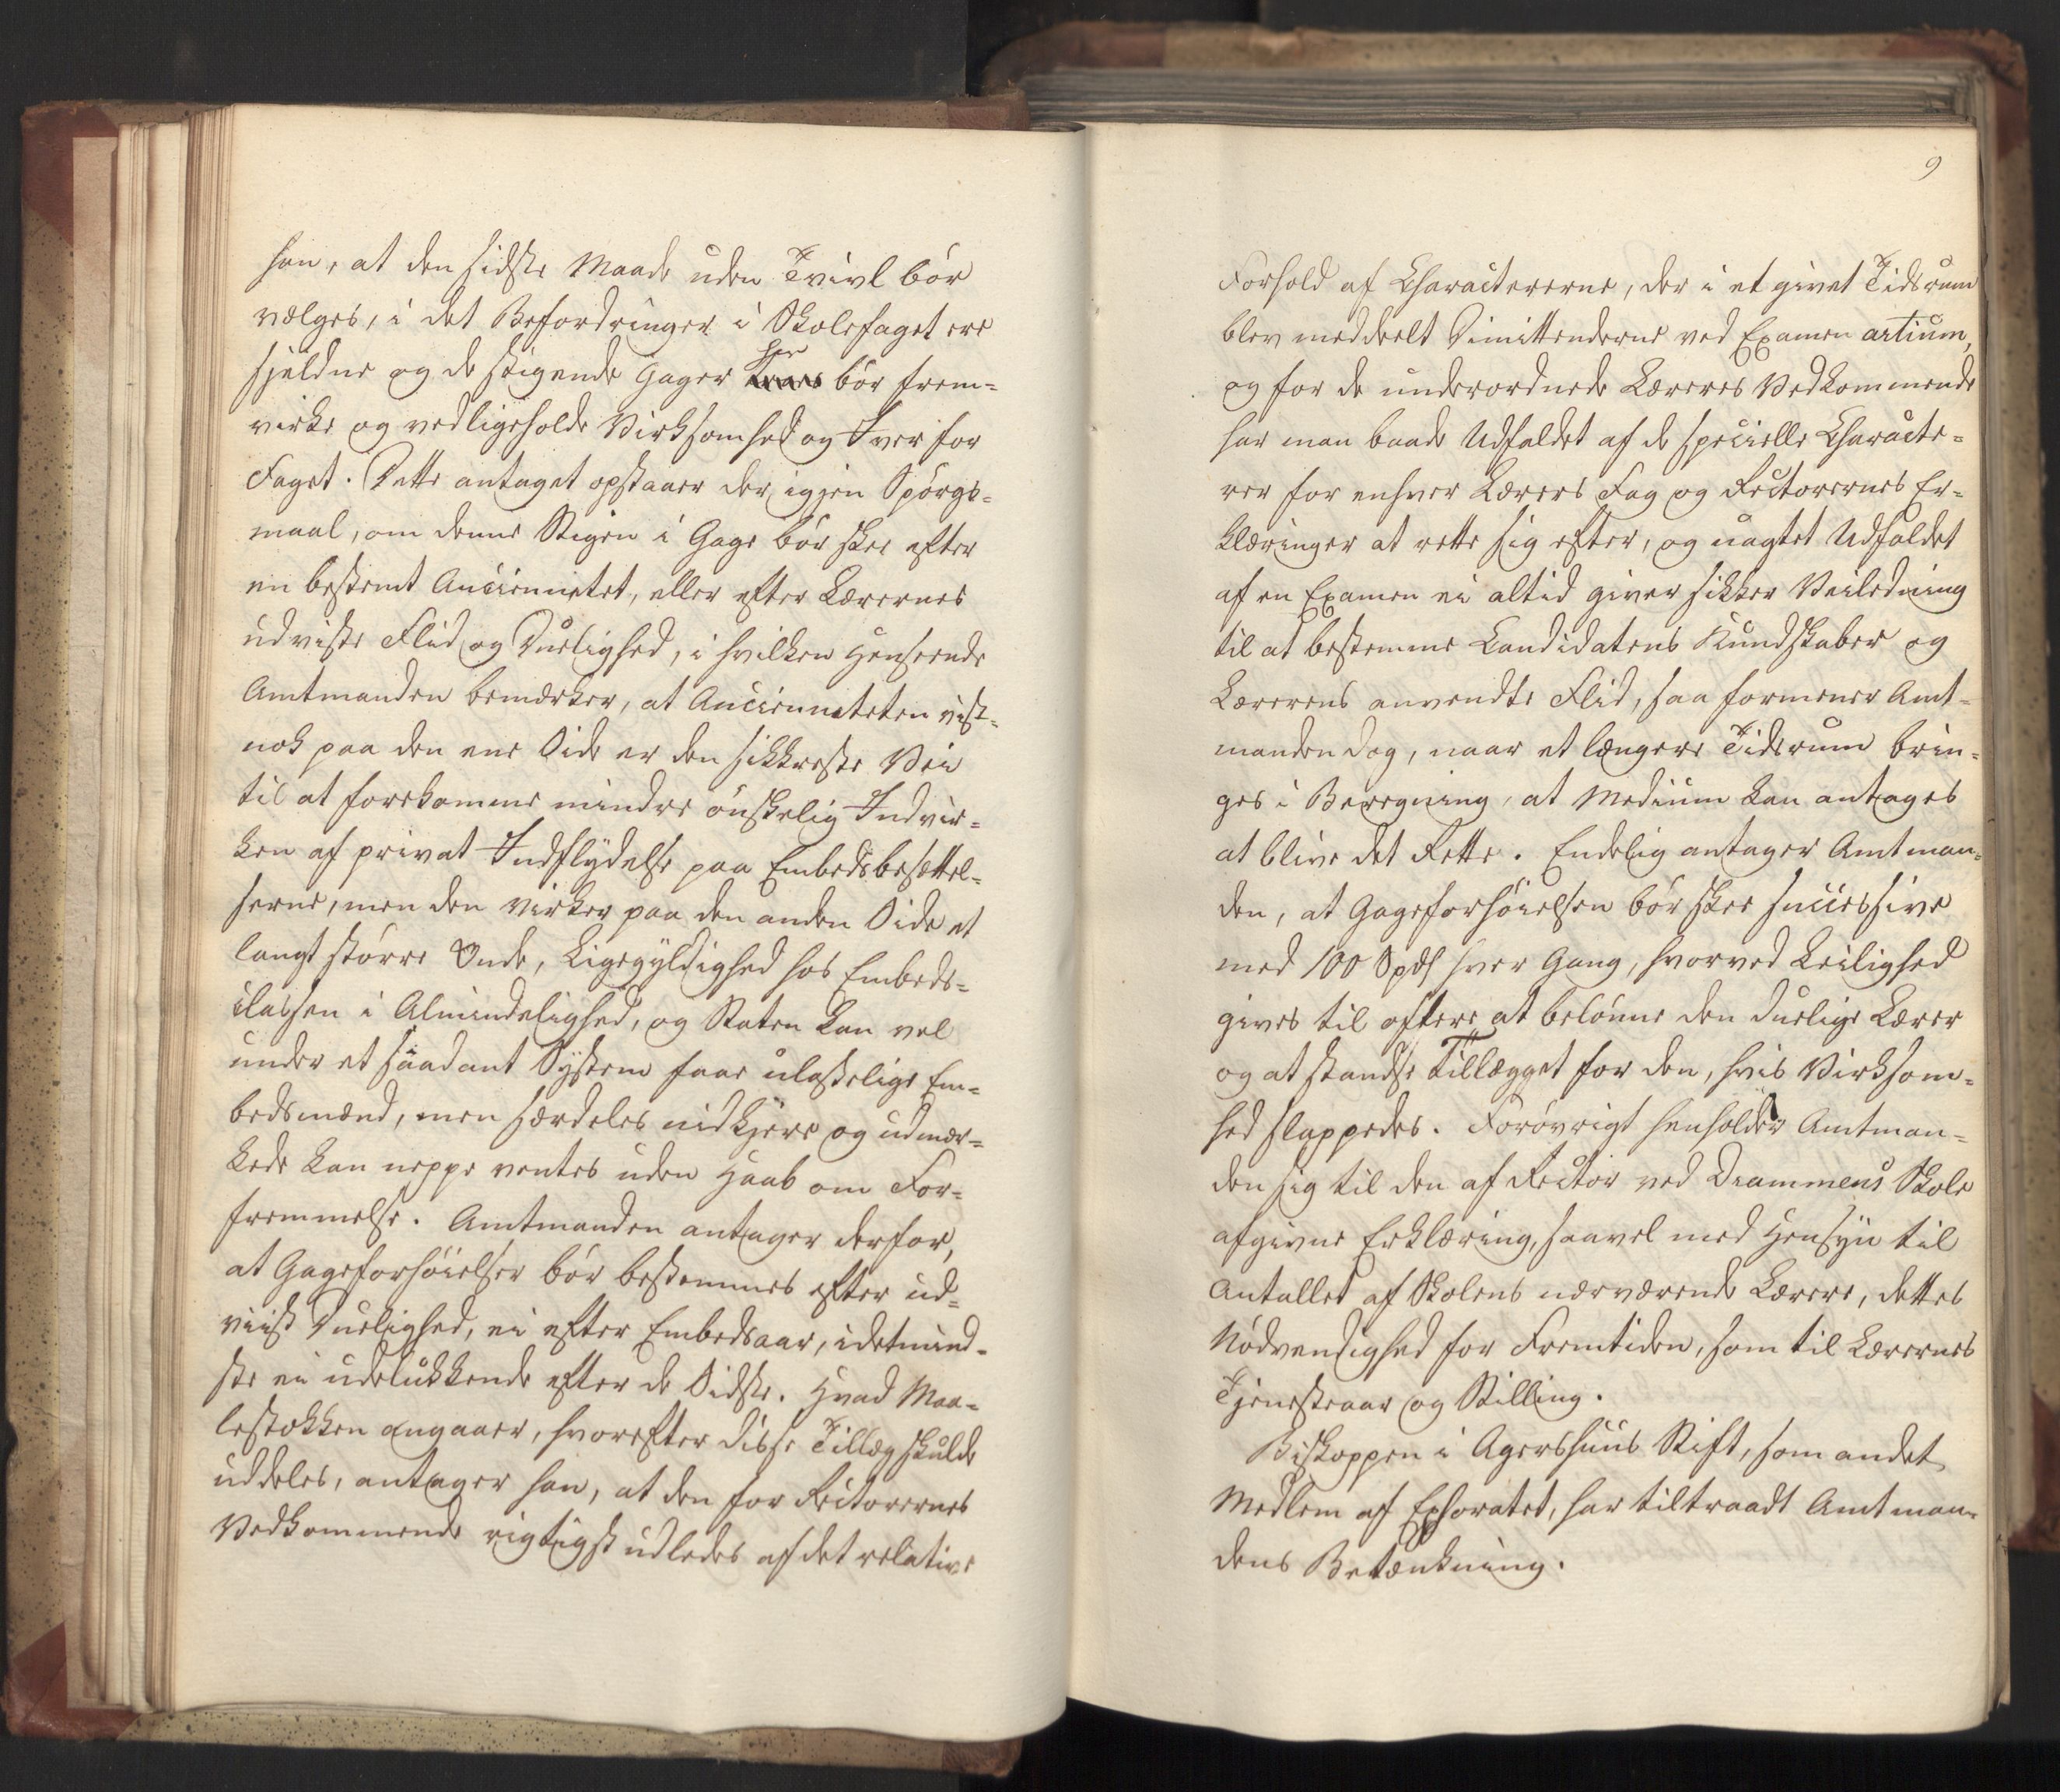 han, at den sidste Maade uden Tvivl bör
vælges, i det Befordringer i Skolefaget ere
sjeldne og de stigende Gager her bör frem-
virke og vedligeholde Virksomhed og Iver for
Faget. Dette antaget opstaaer der igjen Spörgs-
maal, om denne Stigen i Gage bör skee efter
en bestemt Anciennetet, eller efter Lærernes
udviste Flid og Duelighed, i hvilken Henseende
Amtmanden bemærker, at Ancienneteten vist-
nok paa den ene Side er den sikkreste Vei
til at forekomme mindre önskelig Indvir-
ken af privat Indflydelse paa Embedsbesættel-
serne, men den virker paa den anden Side et
langt större Onde, Ligegyldighed hos Embeds-
classen i Almindelighed, og Staten kan vel
under et saadant System faae ulastelige Em-
bedsmænd, men særdeles nidkjere og udmær-
kede kan neppe ventes uden Haab om For-
fremmelse. Amtmanden antager derfor,
at Gageforhöielser bör bestemmes efter ud-
viist Duelighed, ei efter Embedsaar, idetmind-
ste ei udelukkende efter de Sidste. Hvad Maa-
lestokken angaaer, hvorefter disse Tillæg skulde
uddeles, antager han, at den for Rectorernes
Vedkommende rigtigst udledes af det relative
9
Forhold af Charactererne, der i et givet Tidsrum
blev meddeelt Dimittenderne ved Examen artium,
og for de underordnede Læreres Vedkommende
har man baade Udfaldet af de specielle Characte-
rer for enhver Lærers Fag og Rectorernes Er-
klæringer at rette sig efter, og uagtet Udfaldet
af en Examen ei altid giver sikker Veiledning
til at bestemme Candidatens Kundskaber og
Lærerens anvendte Flid, saa formener Amt-
manden dog, naar et længere Tidsrum brin-
ges i Beregning, at Medium kan antages
at blive det Rette. Endelig antager Amtman-
den, at Gageforhöielsen bör skee successive
med 100 Spd hver Gang, hvorved Leilighed
gives til oftere at belönne den duelige Lærer
og at standse Tillægget for den, hvis Virksom-
hed slappedes. Forövrigt henholder Amtman-
den sig til den af Rector ved Drammens Skole
afgivne Erklæring, saavel med Hensyn til
Antallet af Skolens nærværende Lærere, dettes
Nödvendighed for Fremtiden, som til Lærernes
Tjenesteaar og Stilling.
Biskoppen i Agershuus Stift, som andet
Medlem af Ephoratet, har tiltraadt Amtman-
dens Betænkning.